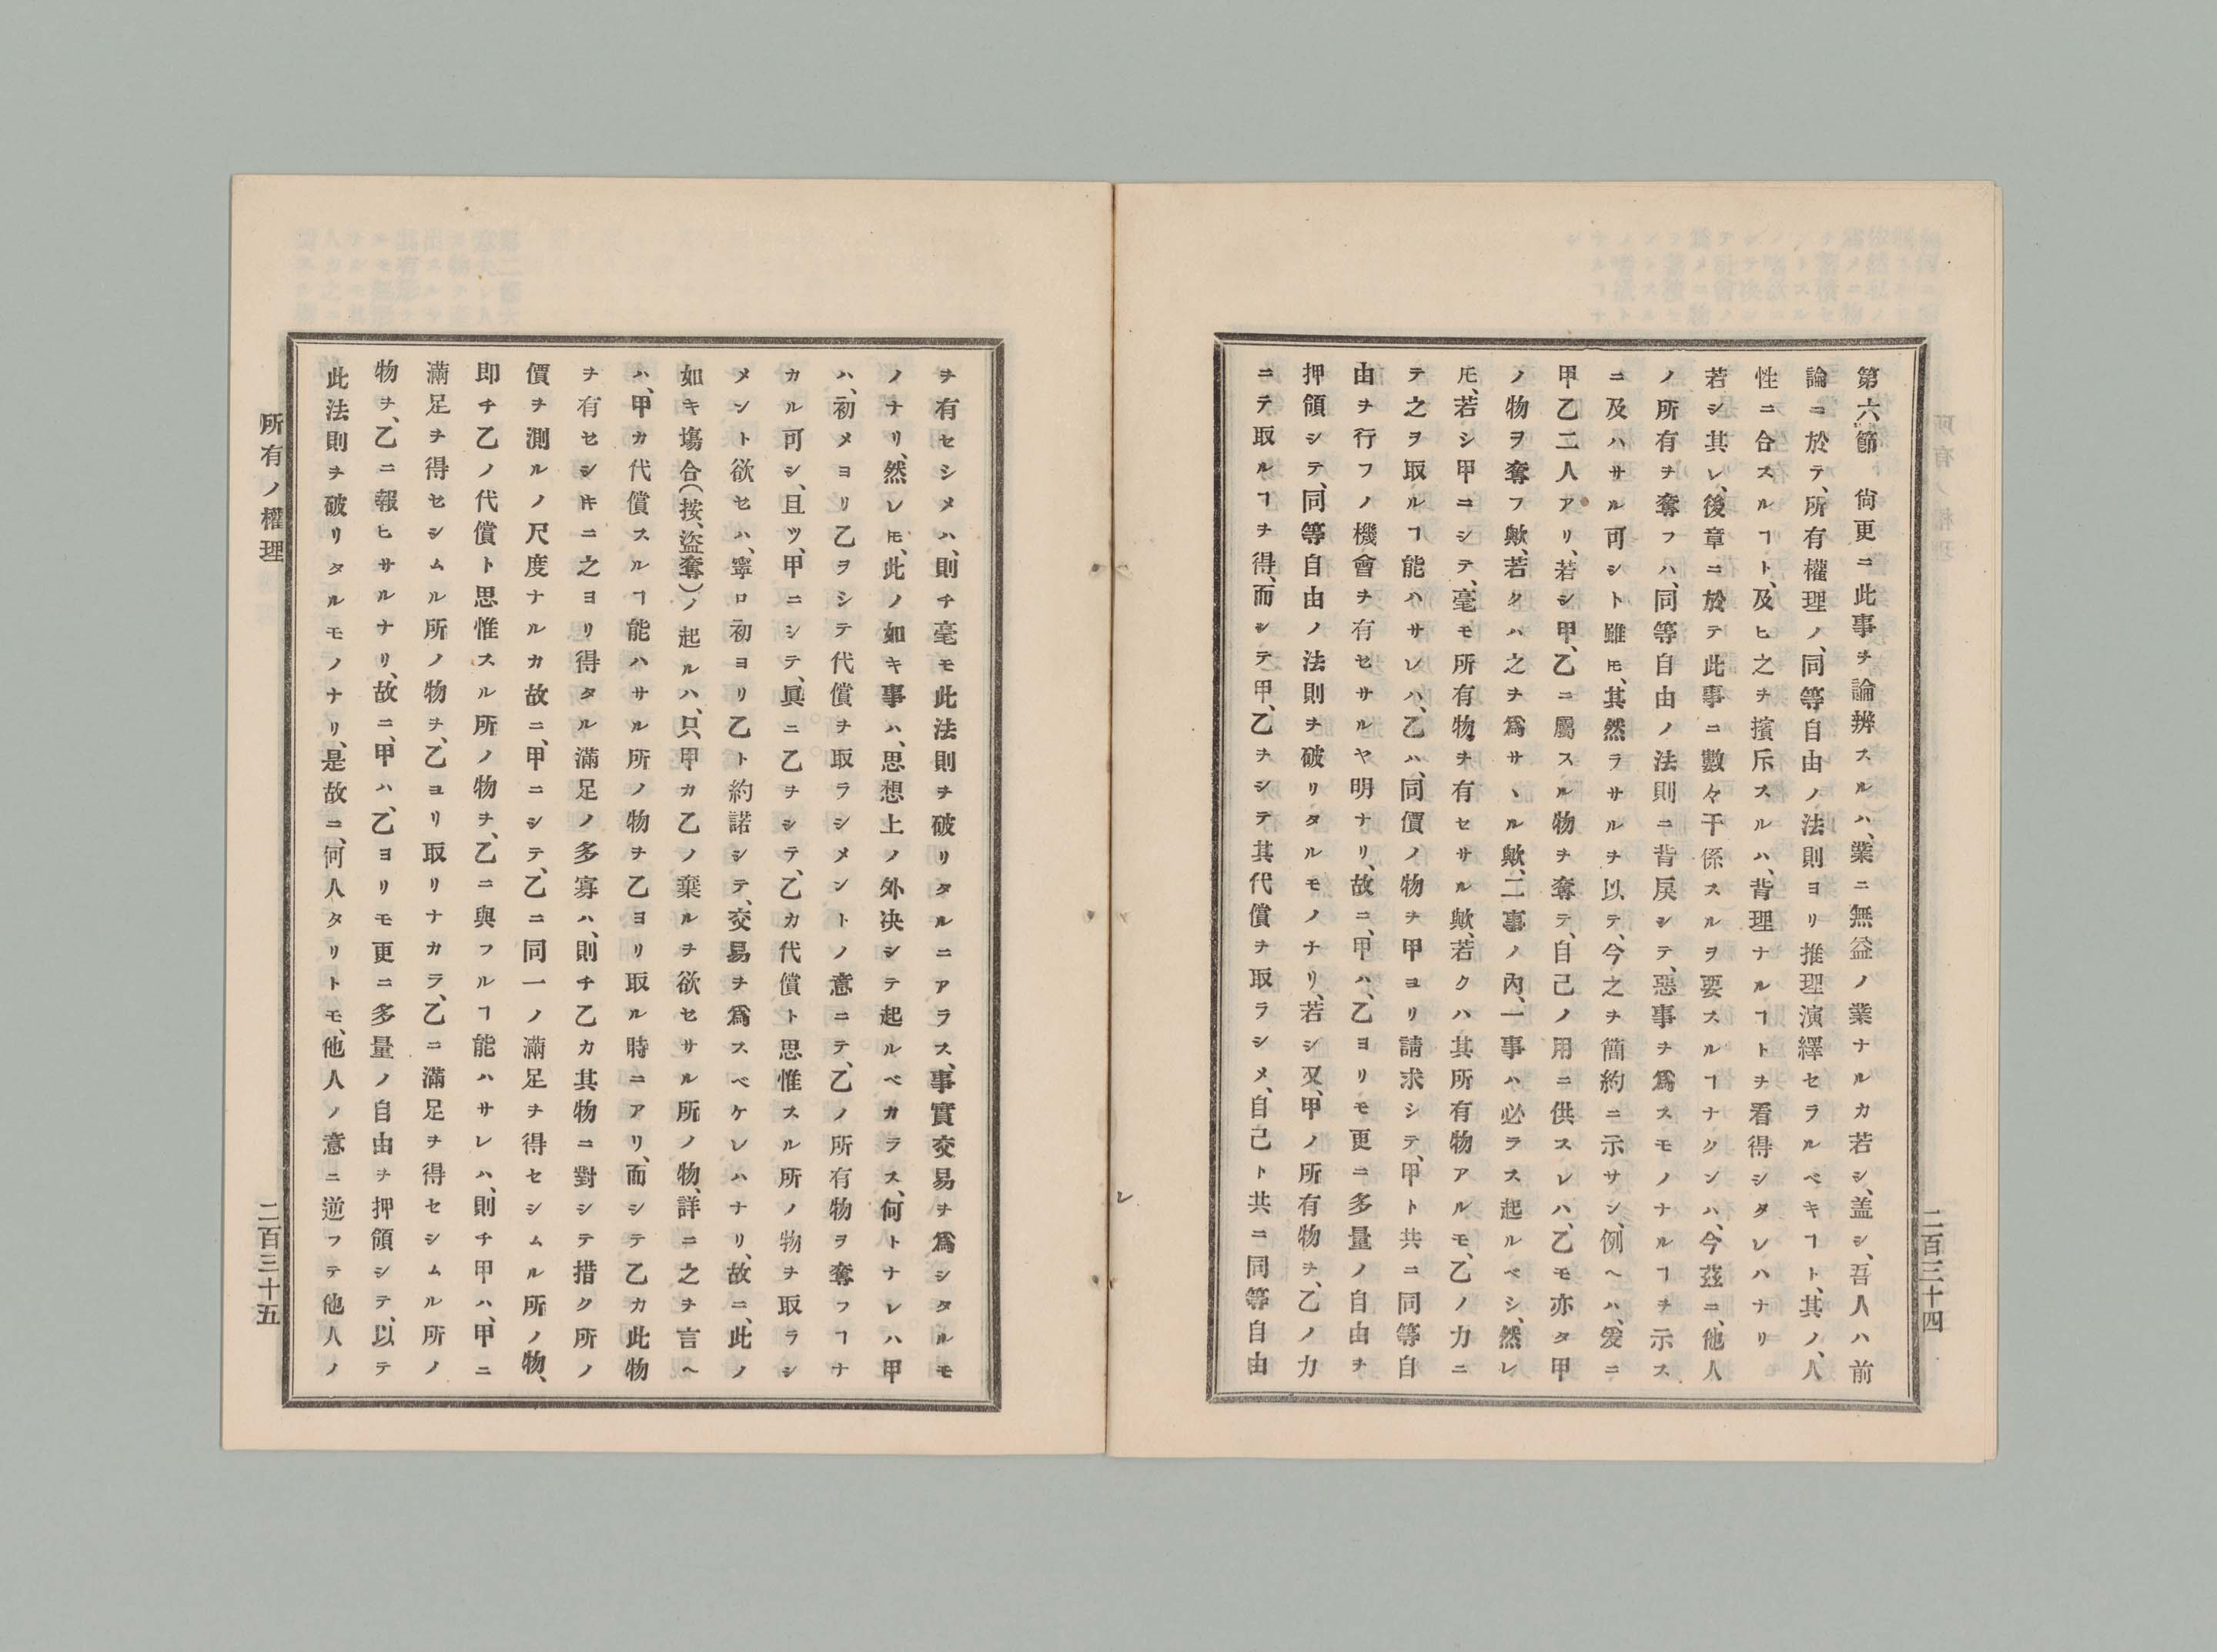 第六節　尙更ニ此事ヲ論辨スルハ、業ニ無益ノ業ナルカ若シ、盖シ、吾人ハ前
論ニ於テ、所有權理ノ、同等自由ノ法則ヨリ推理演繹セラルベキヿト、其ノ、人
性ニ合スルヿト、及ヒ之ヲ擯斥スルハ、背理ナルヿトヲ看得シタレハナリ
若シ其レ、後章ニ於テ此事ニ數々干係スルヲ要スルヿナクンハ、今茲ニ、他人
ノ所有ヲ奪フハ、同等自由ノ法則ニ背戾シテ、惡事ヲ爲スモノナルヿヲ示ス
ニ及ハサル可シト雖𪜈、其然ラサルヲ以テ、今之ヲ簡約ニ示サン、例ヘハ、爰ニ
甲乙二人アリ、若シ甲、乙ニ屬スル物ヲ奪テ、自己ノ用ニ供スレハ、乙モ亦タ甲
ノ物ヲ奪フ歟、若クハ之ヲ爲サヽル歟、二事ノ內、一事ハ必ラス起ルベシ、然レ
𪜈、若シ甲ニシテ、毫モ所有物ヲ有セサル歟、若クハ其所有物アルモ、乙ノ力ニ
テ之ヲ取ルヿ能ハサレハ、乙ハ、同價ノ物ヲ甲ヨリ請求シテ、甲ト共ニ同等自
由ヲ行フノ機會ヲ有セサルヤ明ナリ、故ニ、甲ハ、乙ヨリモ更ニ多量ノ自由ヲ
押領シテ、同等自由ノ法則ヲ破リタルモノナリ、若シ又、甲ノ所有物ヲ、乙ノ力
ニテ取ルヿヲ得、而シテ甲、乙ヲシテ其代償ヲ取ラシメ、自己ト共ニ同等自由
二百三十四
ヲ有セシメハ、則チ毫モ此法則ヲ破リタルニアラス、事實交易ヲ爲シタルモ
ノナリ、然レ𪜈、此ノ如キ事ハ、思想上ノ外决シテ起ルベカラス、何トナレハ甲
ハ、初メヨリ乙ヲシテ代償ヲ取ラシメントノ意ニテ、乙ノ所有物ヲ奪フヿナ
カル可シ、且ツ、甲ニシテ、眞ニ乙ヲシテ、乙カ代償ト思惟スル所ノ物ヲ取ラシ
メント欲セハ、寧ロ初ヨリ乙ト約諾シテ、交易ヲ爲スベケレハナリ、故ニ、此ノ
如キ塲合（按、盜奪）ノ起ルハ、只、甲カ乙ノ棄ルヲ欲セサル所ノ物、詳ニ之ヲ言ヘ
ハ、甲カ代償スルヿ能ハサル所ノ物ヲ乙ヨリ取ル時ニアリ、而シテ乙カ此物
ヲ有セシ𪜈ニ之ヨリ得タル滿足ノ多寡ハ、則チ乙カ其物ニ對シテ措ク所ノ
價ヲ測ルノ尺度ナルカ故ニ、甲ニシテ、乙ニ同一ノ滿足ヲ得セシムル所ノ物、
即チ乙ノ代償ト思惟スル所ノ物ヲ、乙ニ與フルヿ能ハサレハ、則チ甲ハ、甲ニ
滿足ヲ得セシムル所ノ物ヲ、乙ヨリ取リナカラ、乙ニ滿足ヲ得セシムル所ノ
物ヲ、乙ニ報ヒサルナリ、故ニ、甲ハ、乙ヨリモ更ニ多量ノ自由ヲ押領シテ、以テ
此法則ヲ破リタルモノナリ、是故ニ、何人タリトモ、他人ノ意ニ逆フテ他人ノ
所有ノ權理
二百三十五